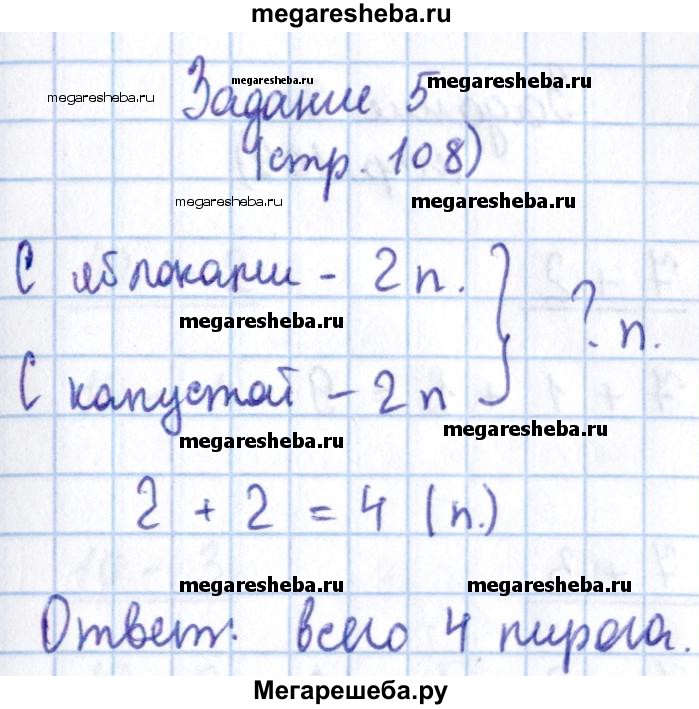 megaresheba.ru
megaresheba.ru Задание 5 megaresheba.ru megaresheba.ru
(стр. 108)
megaresheba.ru megaresheba.ru
С яблоками - 2 п. } ? п.
megaresheba.ru
С капустой - 2 п
megaresheba.ru megaresheba.ru
2 + 2 = 4 (п.)
megaresheba.ru megaresheba.ru
Ответ: всего 4 пирога.
Мегарешеба.ру